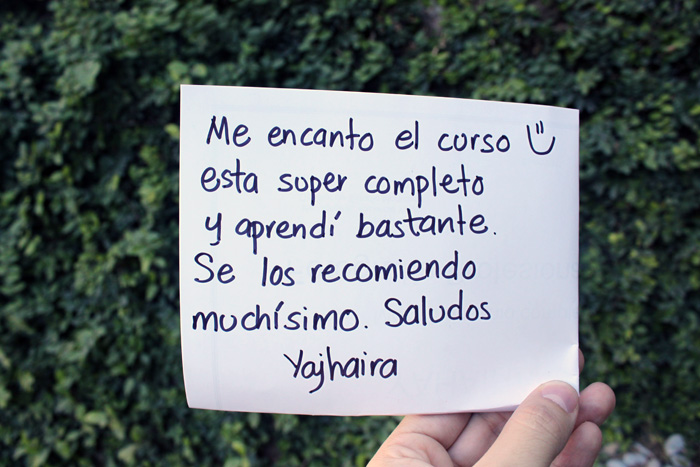 Me encanto el curso
esta super completo
y aprendí bastante.
Se los recomiendo
muchísimo. Saludos
Yajhaira